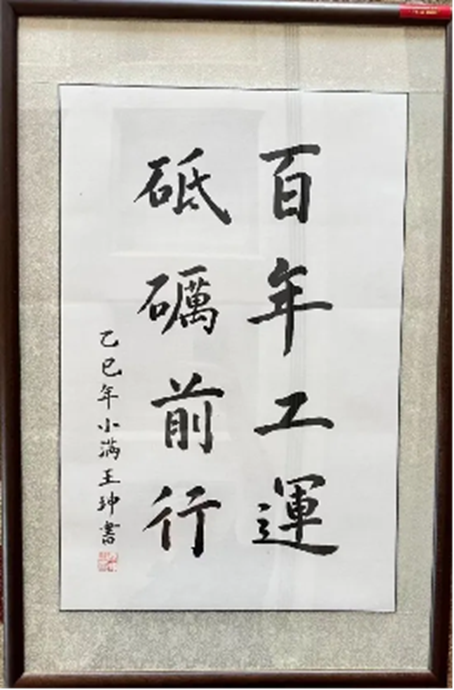 百年工運
砥礪前行
乙巳年小满王珅書